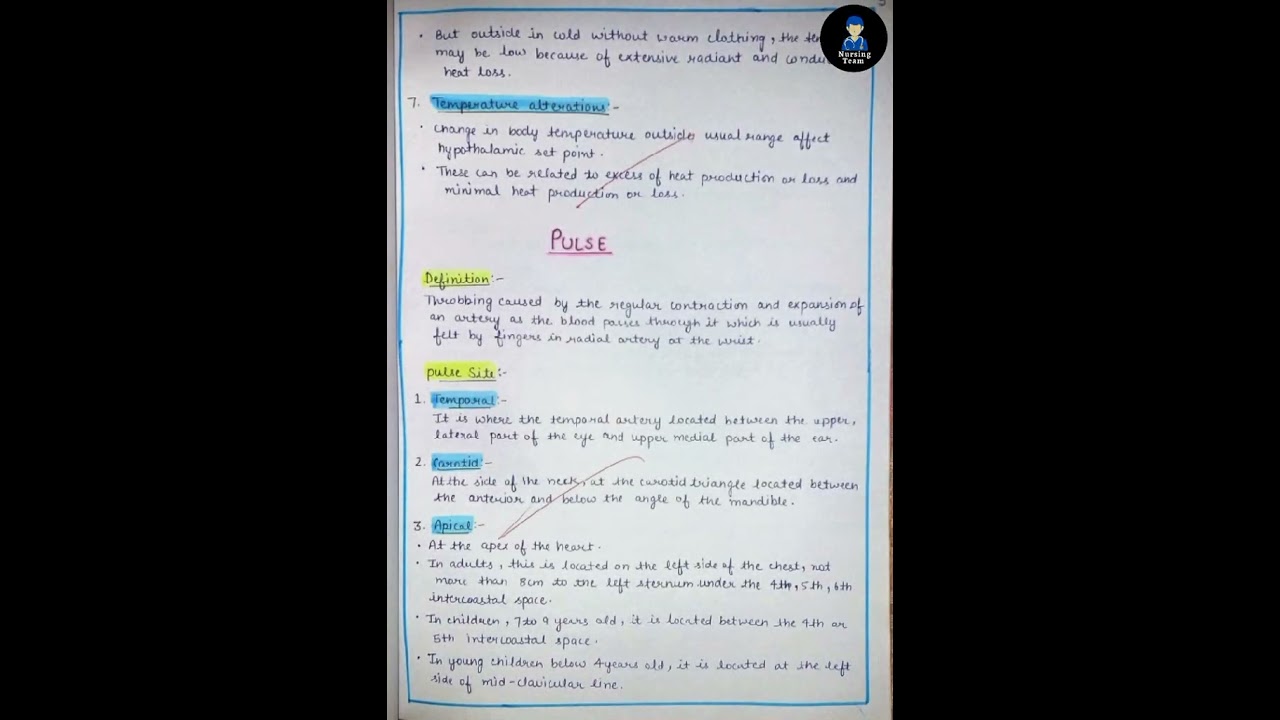 But outside in cold without warm clothing, the
may be low because of extensive radiant and
heat loss.
Nursing
Team
7. Temperature alterations:-
Change in body temperature outside usual range affect
hypothalamic set point.
These can be related to excess of heat production or loss and
minimal heat production or loss.
PULSE
Definition:-
Throbbing caused by the regular contraction and expansion of
an artery as the blood passes through it which is usually
felt by fingers in radial artery at the wrist.
pulse Site:-
1. Temporal:-
It is where the temporal artery located between the upper,
lateral part of the eye and upper medial part of the ear.
2. Carotid:-
At the side of the neck, at the carotid triangle located between
the anterior and below the angle of the mandible.
3. Apical:-
At the apex of the heart.
In adults, this is located on the left side of the chest, not
more than 8cm to the left sternum under the 4th, 5th, 6th
intercoastal space.
In children, 7 to 9 years old, it is located between the 4th or
5th intercoastal space.
In young children below 4 years old, it is located at the left
side of mid-clavicular line.